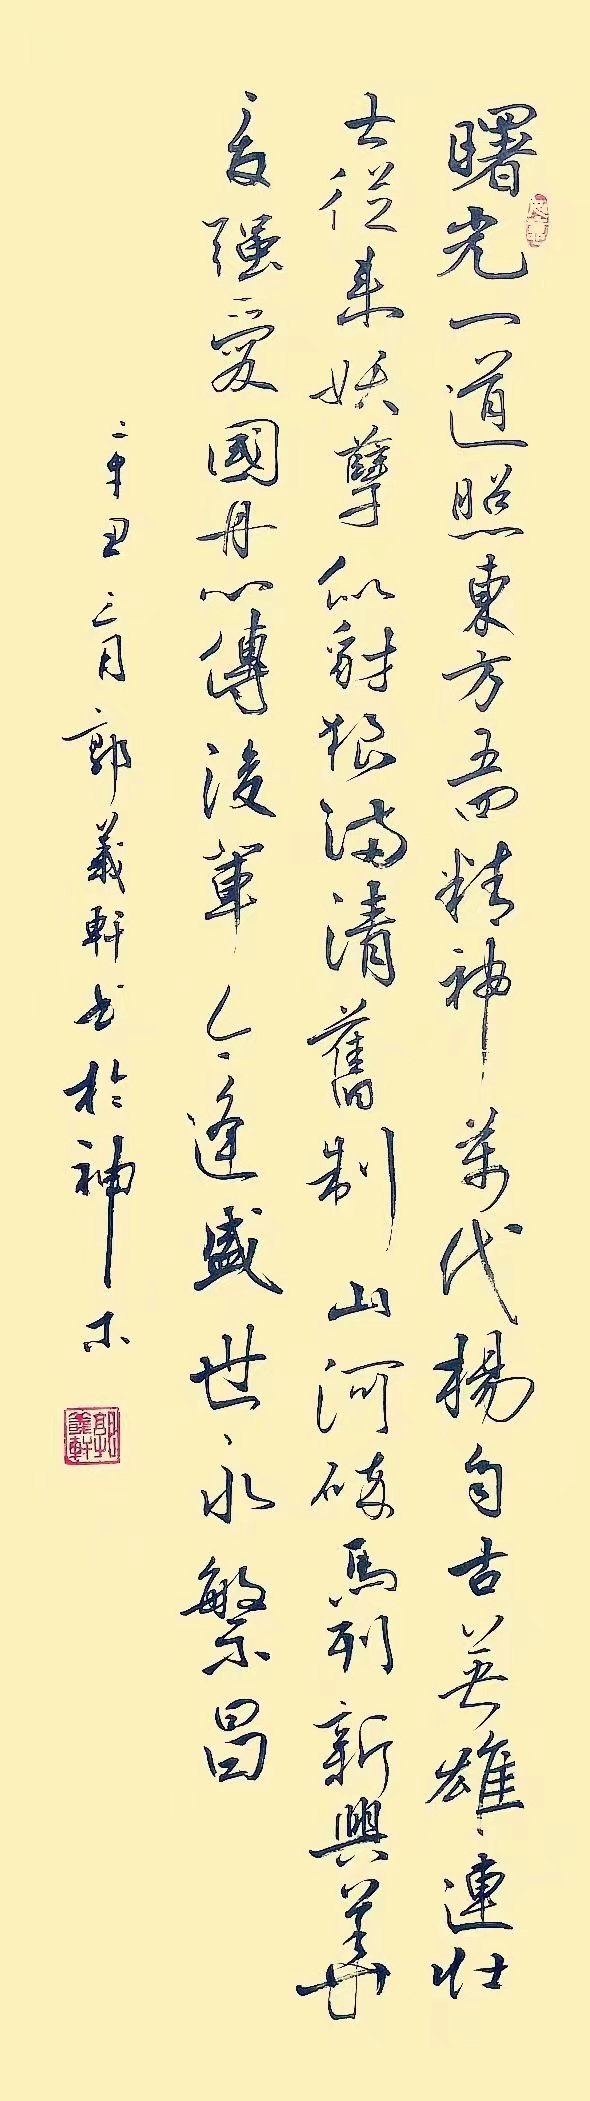 曙光一道照東方五四精神萬代揚自古英雄連壯
士從來妖孽似豺狼滿清舊制山河破馬列新興華
夏强愛國丹心傳後輩今逢盛世永繁昌
辛丑三月郭義軒书於神木
郭義軒